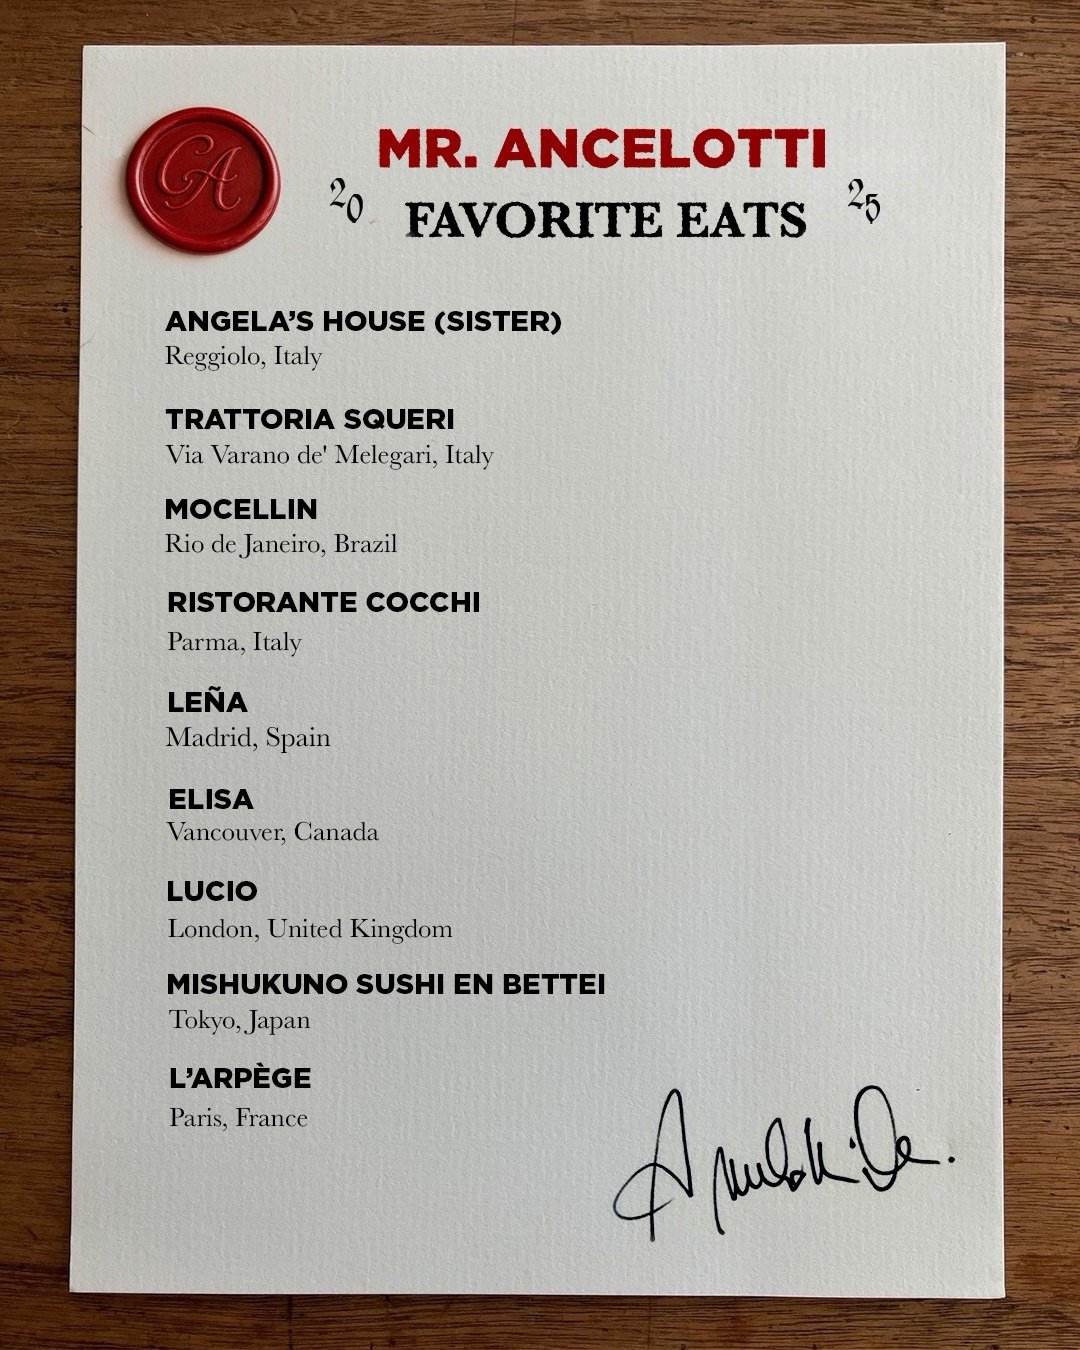 CA
MR. ANCELOTTI
20 FAVORITE EATS 25
ANGELA’S HOUSE (SISTER)
Reggiolo, Italy
TRATTORIA SQUERI
Via Varano de' Melegari, Italy
MOCELLIN
Rio de Janeiro, Brazil
RISTORANTE COCCHI
Parma, Italy
LEÑA
Madrid, Spain
ELISA
Vancouver, Canada
LUCIO
London, United Kingdom
MISHUKUNO SUSHI EN BETTEI
Tokyo, Japan
L’ARPÈGE
Paris, France